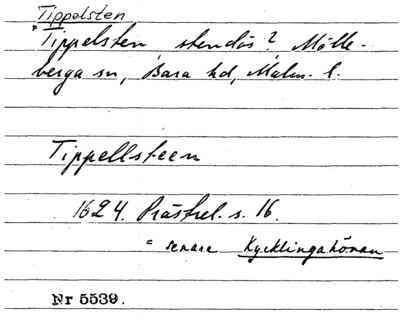 Tippelsten
*Tippelsten stendös? Mölle-
berga sn, Bara hd, Malm. l.
Tippellsteen
1624. Prästrel. s. 16.
= senare Kycklingahönan
Nr 5539.